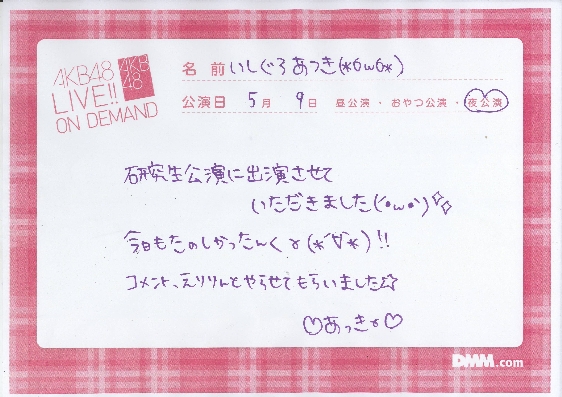 AKB48
LIVE!!
ON DEMAND
AKB
48
名前 いしぐろあつき(*óωò*)
公演日 5月 9日 昼公演・おやつ公演・夜公演
研究生公演に出演させて
いただきました(´•ω•`)☆☆
今日もたのしかったんくγ(*´∀`*)!!
コメント、えりりんとやらせてもらいました☆
♡あっきγ♡
DMM.com